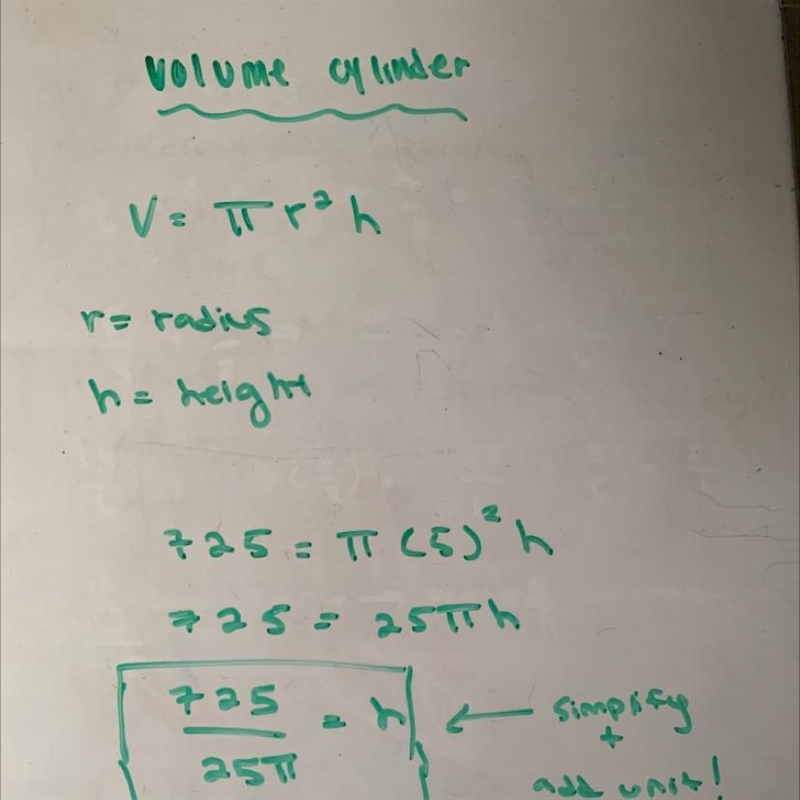 volume cylinder
V = πr²h
r = radius
h = height
725 = π(5)²h
725 = 25πh
725/25π = h ← simplify
+
add unit!